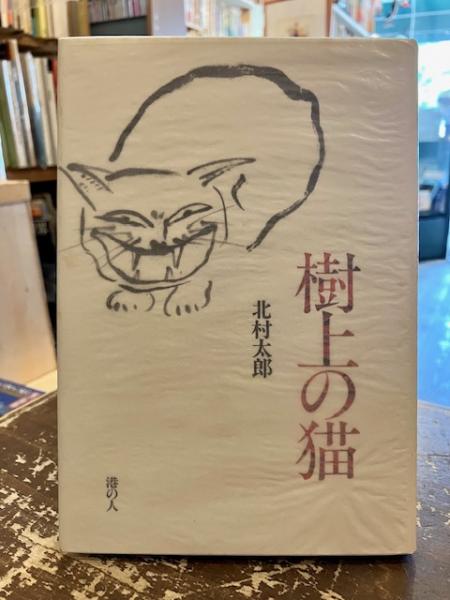 樹上の猫
北村太郎
港の人